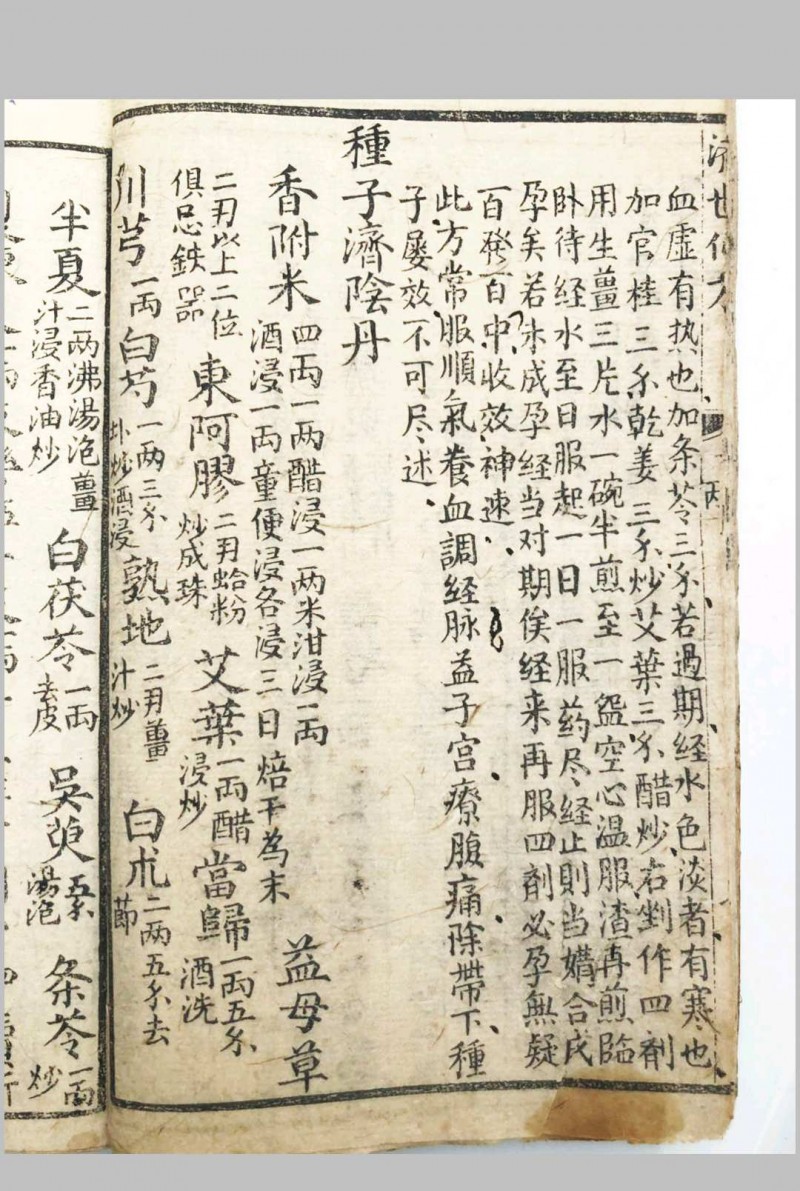 血虛有热也加条芩三分若過期経水色淡者有寒也
加官桂三分乾姜三分炒艾葉三分醋炒右剉作四劑
用生薑三片水一碗半煎至一盌空心温服渣再煎臨
卧待経水至日服起一日一服葯尽経止則当媾合成
孕矣若未成孕経当对期俟経来再服四劑必孕無疑
百発百中收效神速
此方常服順氣養血調経脉益子宫療腹痛除帶下種
子屡效不可尽述
種子濟陰丹
香附米 四両一两醋浸一两米泔浸一両
酒浸一両童便浸各浸三日焙干為末
益母草
二刄以上二位
俱忌鉄器
東阿膠 二刄蛤粉
炒成珠
艾葉 一両醋
浸炒
當歸 一両五分
酒洗
川芎 一両
白芍 一两三分
酒浸
熟地 二刄薑
汁炒
白朮 二两五分去
節
半夏 二两沸湯泡薑
汁浸香油炒
白茯苓 一両
去皮
吳萸 五分
湯泡
条芩 一両
炒